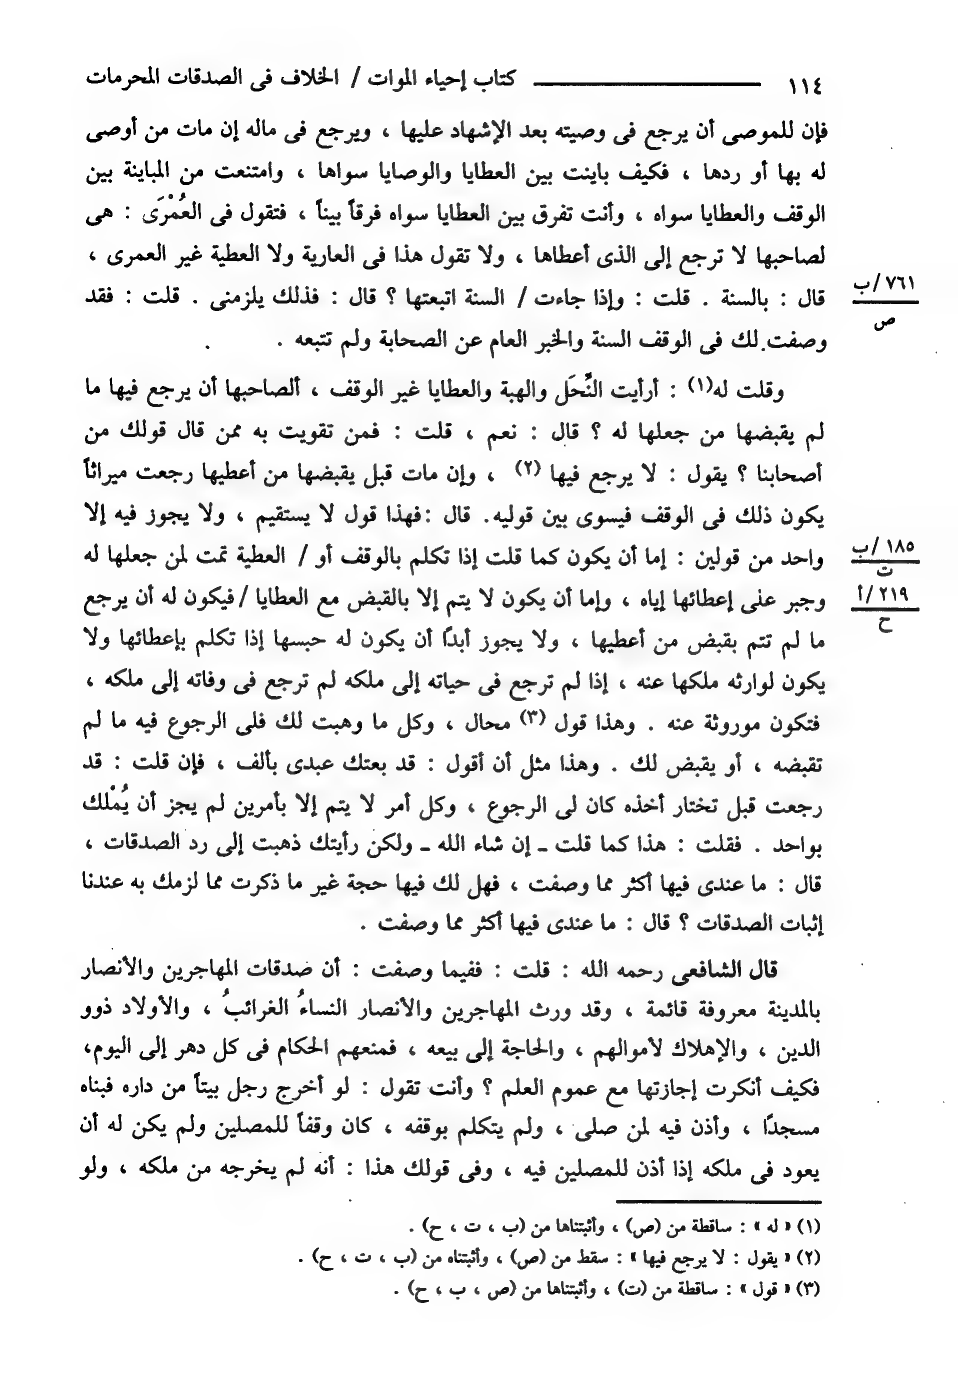 ١١٤ ــــــــــــــــ كتاب إحياء الموات / الخلاف فى الصدقات المحرمات
فإن للموصى أن يرجع فى وصيته بعد الإشهاد عليها ، ويرجع فى ماله إن مات من أوصى
له بها أو ردها ، فكيف باينت بين العطايا والوصايا سواها ، وامتنعت من المباينة بين
الوقف والعطايا سواه ، وأنت تفرق بين العطايا سواه فرقاً بيناً ، فتقول فى العُمْرَى : هى
لصاحبها لا ترجع إلى الذى أعطاها ، ولا تقول هذا فى العارية ولا العطية غير العمرى ،
قال : بالسنة . قلت : وإذا جاءت / السنة اتبعتها ؟ قال : فذلك يلزمنى . قلت : فقد
٧٦١/ب
ص
وصفت لك فى الوقف السنة والخبر العام عن الصحابة ولم تتبعه .
وقلت له(١) : أرأيت النُّحَل والهبة والعطايا غير الوقف ، ألصاحبها أن يرجع فيها ما
لم يقبضها من جعلها له ؟ قال : نعم ، قلت : فمن تقويت به ممن قال قولك من
أصحابنا ؟ يقول : لا يرجع فيها (٢) ، وإن مات قبل يقبضها من أعطيها رجعت ميراثاً
يكون ذلك فى الوقف فيسوى بين قوليه. قال :فهذا قول لا يستقيم ، ولا يجوز فيه إلا
واحد من قولين : إما أن يكون كما قلت إذا تكلم بالوقف أو / العطية تمت لمن جعلها له
١٨٥/ب
ت
وجبر على إعطائها إياه ، وإما أن يكون لا يتم إلا بالقبض مع العطايا /فيكون له أن يرجع
٢١٩/أ
ح
ما لم تتم بقبض من أعطيها ، ولا يجوز أبدًا أن يكون له حبسها إذا تكلم بإعطائها ولا
يكون لوارثه ملكها عنه ، إذا لم ترجع فى حياته إلى ملكه لم ترجع فى وفاته إلى ملكه ،
فتكون موروثة عنه . وهذا قول (٣) محال ، وكل ما وهبت لك فلى الرجوع فيه ما لم
تقبضه ، أو يقبض لك . وهذا مثل أن أقول : قد بعتك عبدى بألف ، فإن قلت : قد
رجعت قبل تختار أخذه كان لى الرجوع ، وكل أمر لا يتم إلا بأمرين لم يجز أن يُمْلك
بواحد . فقلت : هذا كما قلت ـ إن شاء الله ـ ولكن رأيتك ذهبت إلى رد الصدقات ،
قال : ما عندى فيها أكثر مما وصفت ، فهل لك فيها حجة غير ما ذكرت مما لزمك به عندنا
إثبات الصدقات ؟ قال : ما عندى فيها أكثر مما وصفت .
قال الشافعى رحمه الله : قلت : ففيما وصفت : أن صدقات المهاجرين والأنصار
بالمدينة معروفة قائمة ، وقد ورث المهاجرين والأنصار النساءُ الغرائبُ ، والأولاد ذوو
الدين ، والإهلاك لأموالهم ، والحاجة إلى بيعه ، فمنعهم الحكام فى كل دهر إلى اليوم،
فكيف أنكرت إجازتها مع عموم العلم ؟ وأنت تقول : لو أخرج رجل بيتاً من داره فبناه
مسجدًا ، وأذن فيه لمن صلى ، ولم يتكلم بوقفه ، كان وقفاً للمصلين ولم يكن له أن
يعود فى ملكه إذا أذن للمصلين فيه ، وفى قولك هذا : أنه لم يخرجه من ملكه ، ولو
(١) « له » : ساقطة من (ص) ، وأثبتناها من (ب ، ت ، ح) .
(٢) « يقول : لا يرجع فيها » : سقط من (ص) ، وأثبتناه من (ب ، ت ، ح) .
(٣) « قول » : ساقطة من (ت) ، وأثبتناها من (ص ، ب ، ح) .